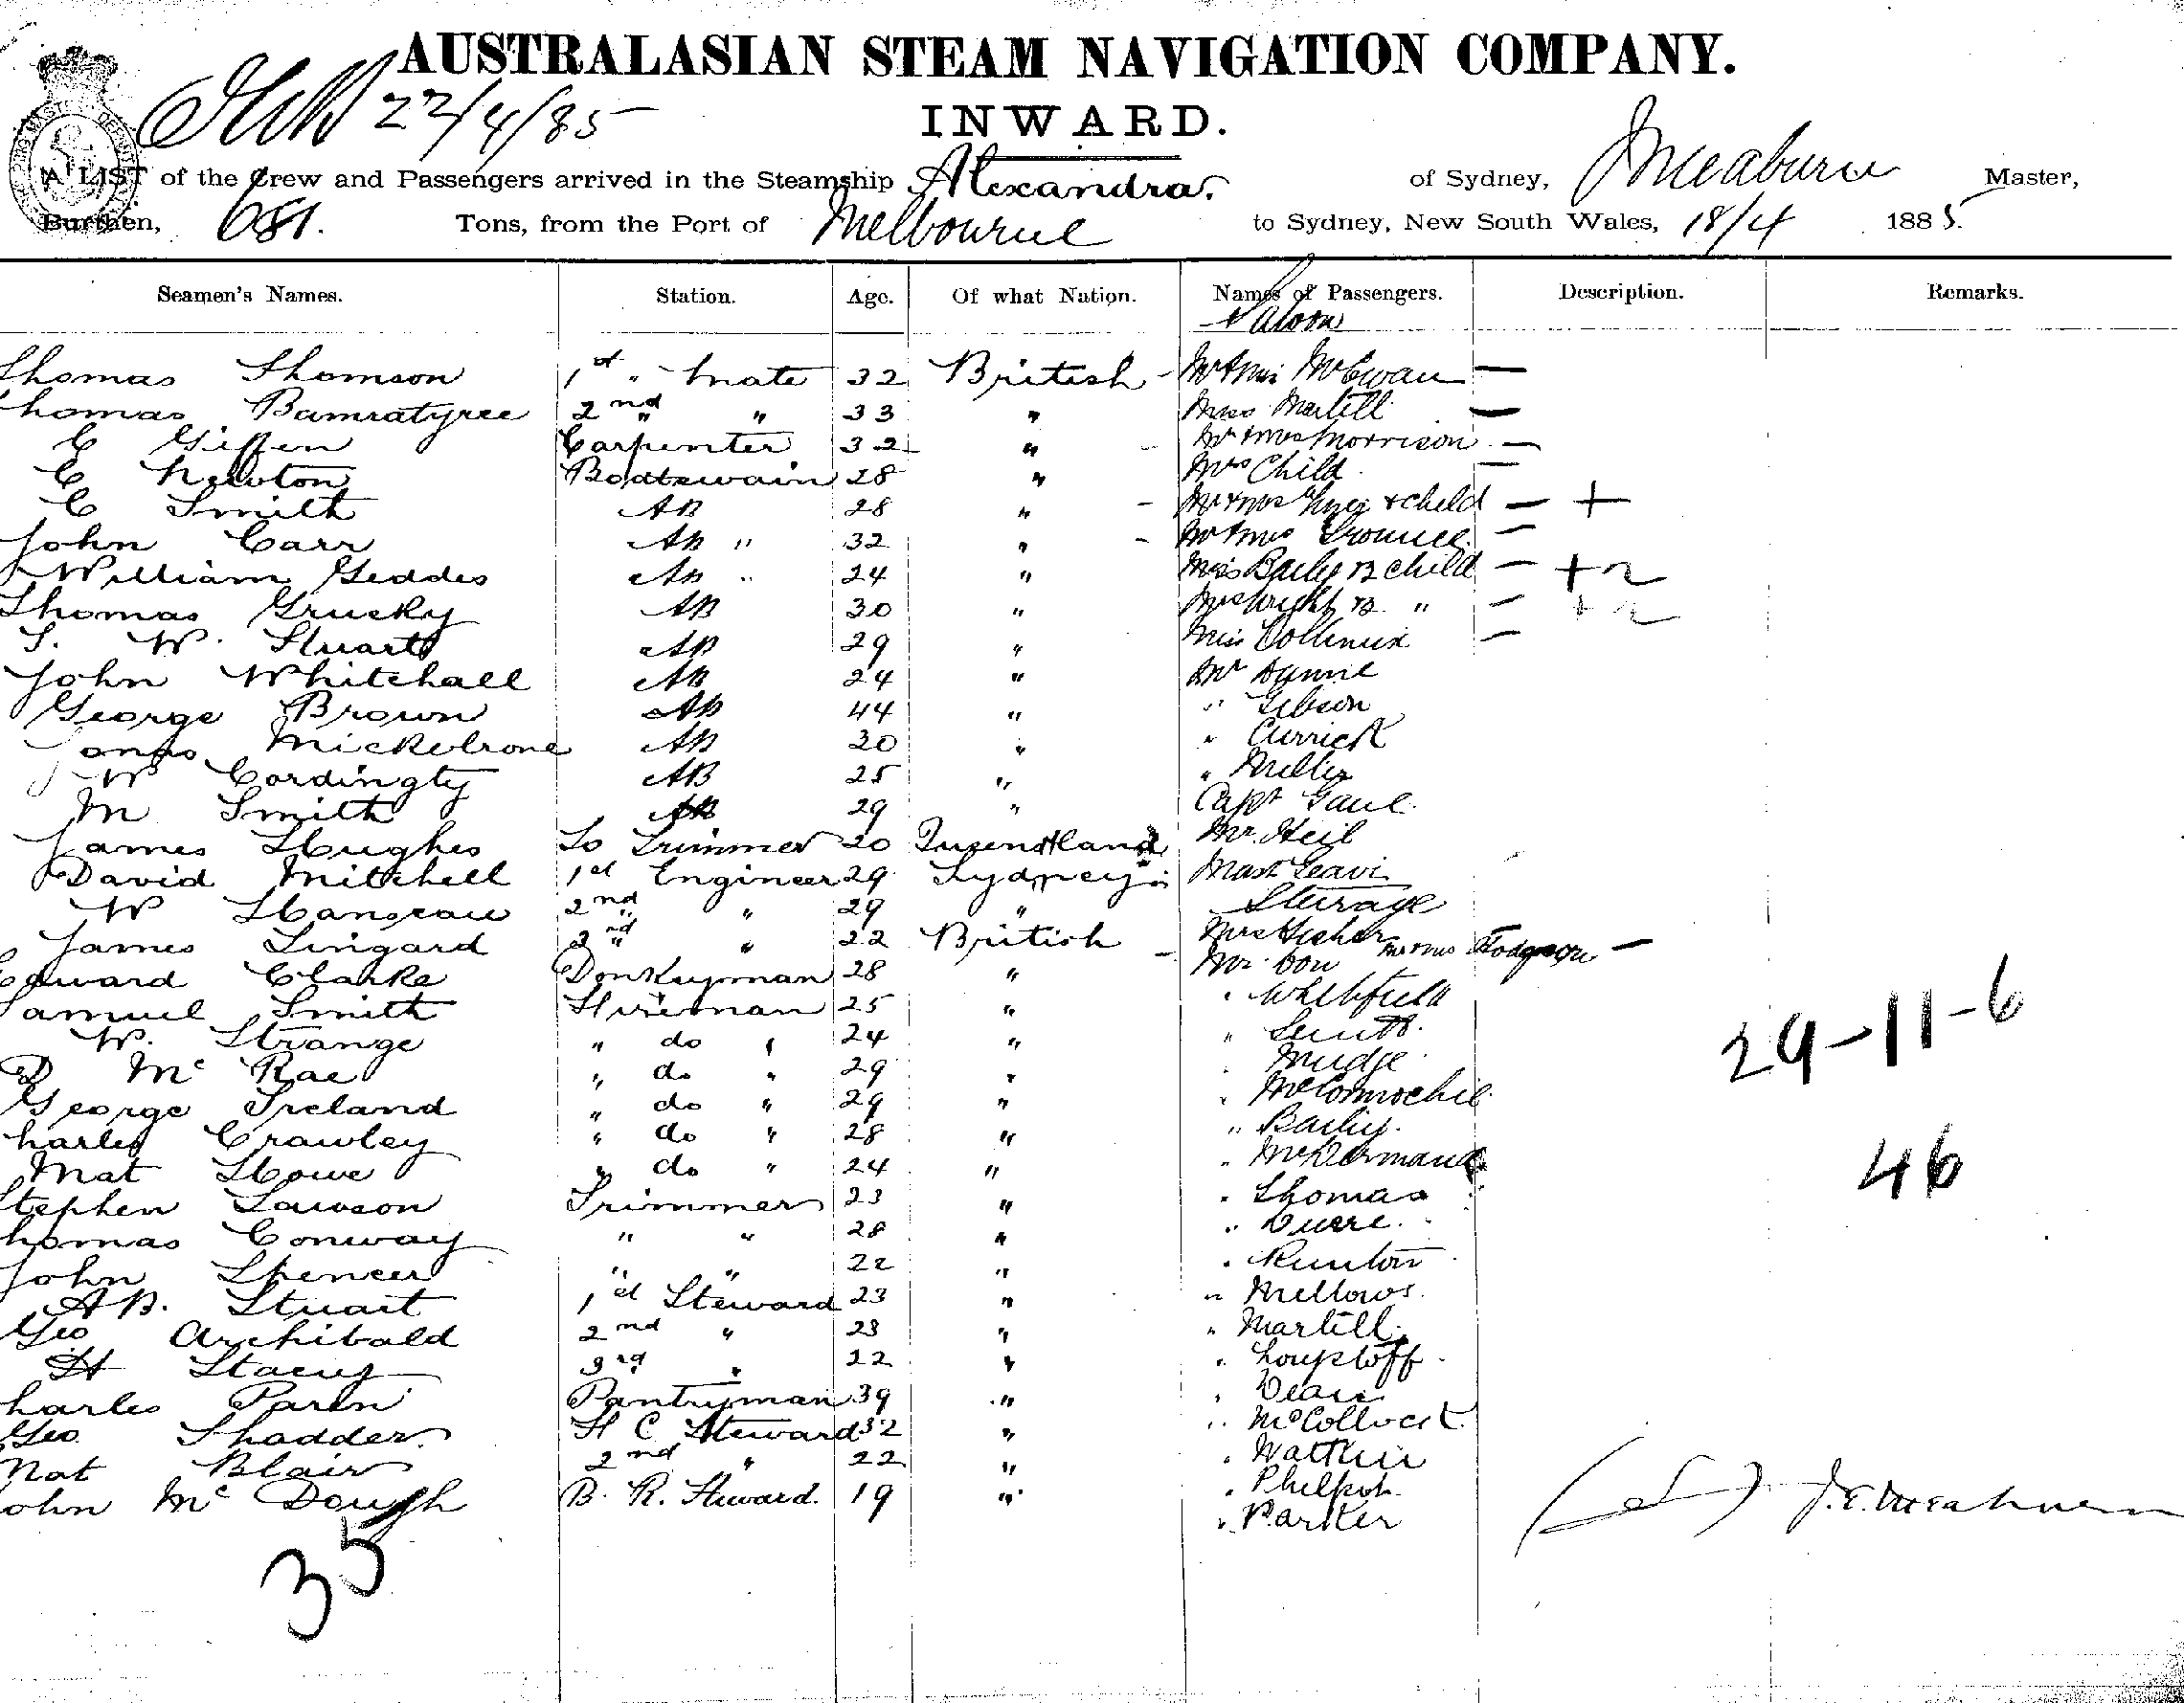 AUSTRALASIAN STEAM NAVIGATION COMPANY.
22/4/85
INWARD.
A LIST of the Crew and Passengers arrived in the Steamship Alexandra, of Sydney, Master,
Burthen, 681. Tons, from the Port of Melbourne to Sydney, New South Wales, 18/4 1885.
Seamen's Names. Station. Age. Of what Nation. Names of Passengers. Description. Remarks.
Saloon
Thomas Thomson 1st " Mate 32 British Mr & Mrs McEwan —
Thomas Bamratyree 2nd " " 33 " Miss Martell —
C Giffen Carpenter 32 " Mr & Mrs Morrison —
C Newton Boatswain 28 " Mrs Child —
C Smith AB 28 " Mr & Mrs & child — +
John Carr AB " 32 " Mr & Mrs —
William Geddes AB " 24 " Miss Baily & child — + 2
Thomas Grucky AB 30 " Mrs Wright & " — + 2
S. W. Stuart AB 29 " Miss —
John Whitehall AB 24 " Mr
George Brown AB 44 " " Gibson
Jonas Mickelrone AB 30 " " Currick
W Cordingty AB 25 " " Miller
M Smith AB 29 " Capt Gaul
James Hughes To Trimmer 20 Queensland Mr. Heil
David Mitchell 1st Engineer 29 Sydney Mast
W 2nd " " 29 " Steerage
James Lingard 2nd " " 22 British Mrs Fisher Mr & Mrs Hodgson —
Edward Clarke Donkeyman 28 " Mr.
Samuel Smith Fireman 25 " " Whitfield
W. Strange " do " 24 " "
D McRae " do " 29 " " Mudge
George Ireland " do " 29 " "
Charles Crawley " do " 28 " " Baily.
Mat Howe " do " 24 " "
Stephen Lawson Trimmer 23 " " Thomas
Thomas Conway " " 28 " "
John Spencer " " 22 " "
A B. Stuart 1st Steward 23 " " Mellows.
Geo Archibald 2nd " 23 " " Martell
H Stacey 3rd " 22 " "
Charles Paren Pantryman 39 " " Dean
Geo Shadder F C Steward 32 "
Nat Blair 2nd " 22 "
John McDough B. R. Steward. 19 " " Philpot
" Parker
29-11-6
46
J. E. Meaburn
35